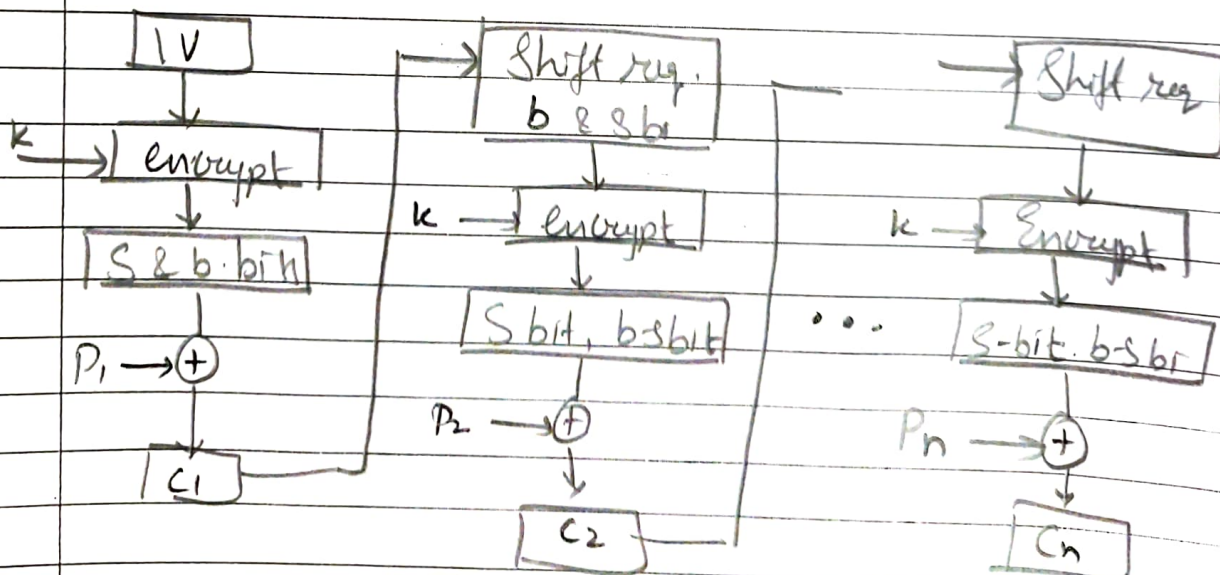 IV
K
encrypt
S & b. bit
P1
+
C1
Shift reg.
b & sbi
K
encrypt
S bit, b-sbit
P2
+
C2
...
Shift reg
K
Encrypt
S-bit. b-sbi
Pn
+
Cn